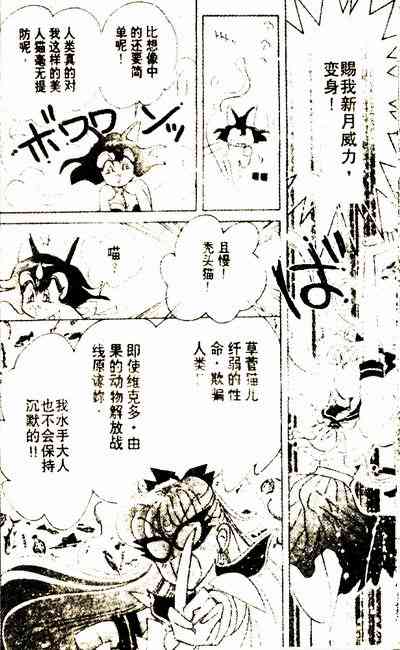 赐我新月威力，
变身！
ば
比想像中
的还要简
单呢！
人类真的对
我这样的美
人猫毫无提
防呢，
ボワワワン
且慢！
秃头猫！
喵，
草菅猫儿
纤弱的性
命，欺骗
人类！
即使维克多·由
果的动物解放战
线原谅妳，
我水手大人
也不会保持
沉默的！！